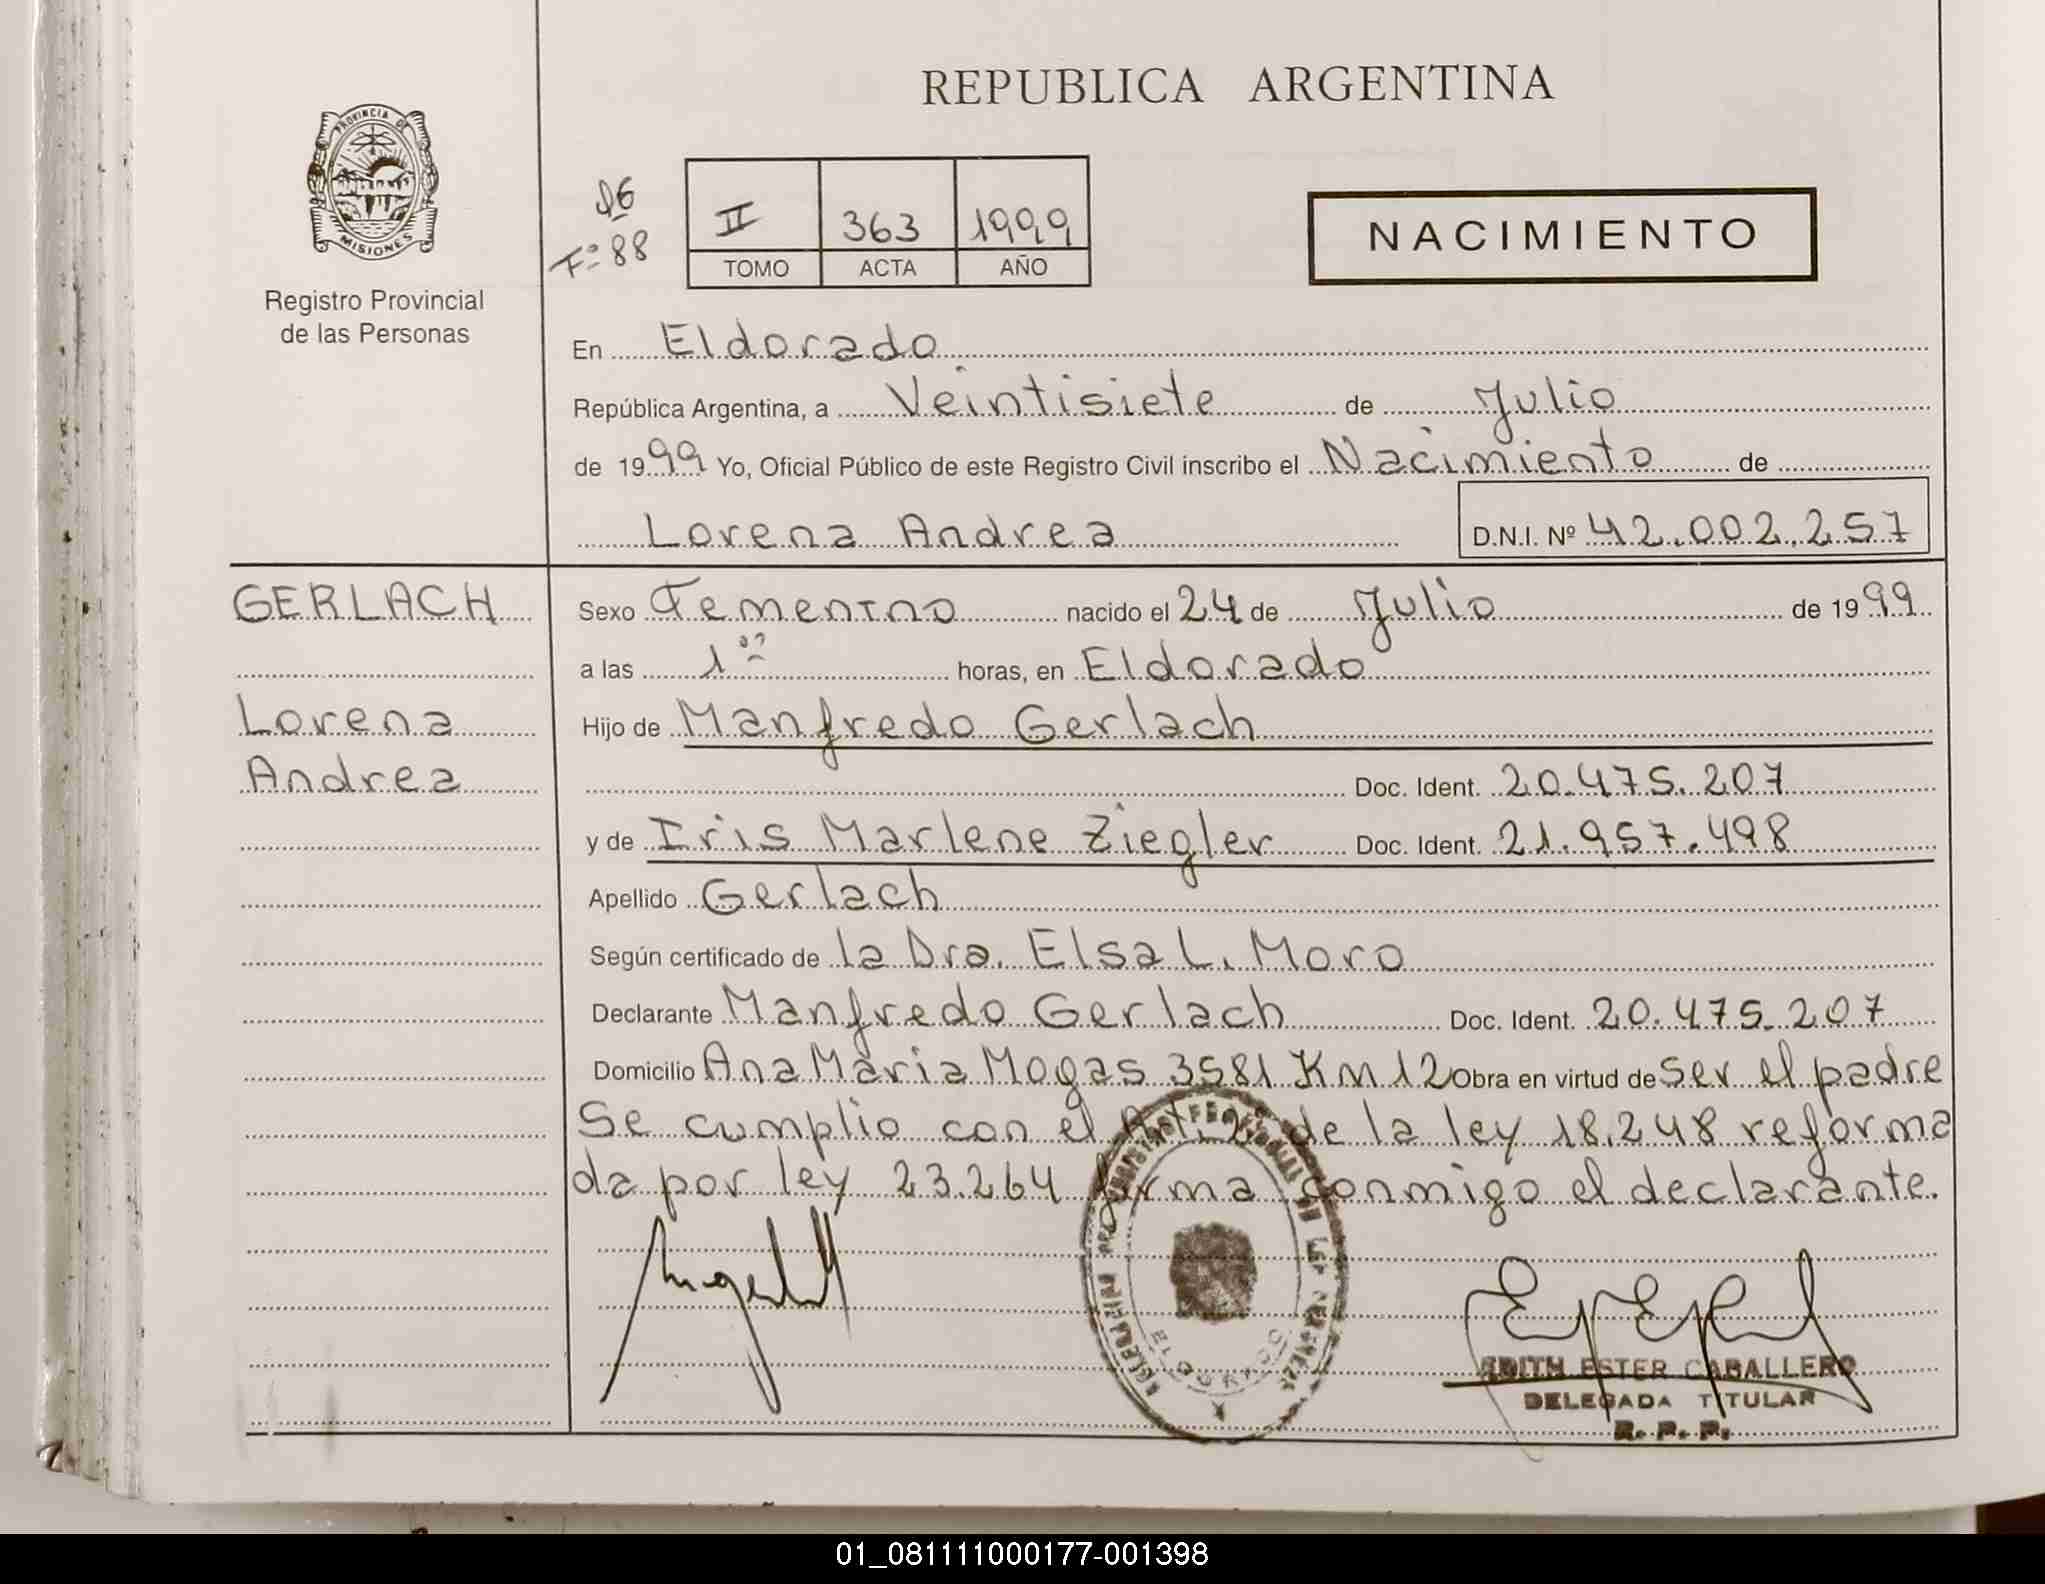 REPUBLICA ARGENTINA
PROVINCIA DE
MISIONES
Registro Provincial
de las Personas
F° 88
II 363 1999
TOMO ACTA AÑO
NACIMIENTO
En Eldorado
República Argentina, a Veintisiete de Julio
de 1999 Yo, Oficial Público de este Registro Civil inscribo el Nacimiento de
Lorena Andrea D.N.I. Nº 42.002.257
GERLACH
Lorena
Andrea
Sexo Femenino nacido el 24 de Julio de 1999
a las 1 horas, en Eldorado
Hijo de Manfredo Gerlach
Doc. Ident. 20.475.207
y de Iris Marlene Ziegler Doc. Ident. 21.957.498
Apellido Gerlach
Según certificado de la Dra. Elsa L. Moro
Declarante Manfredo Gerlach Doc. Ident. 20.475.207
Domicilio Ana Maria Mogas 3581 Km 12 Obra en virtud de ser el padre
Se cumplio con el de la ley 18.248 reforma
da por ley 23.264 firma conmigo el declarante.
ELDORADO
EDITH ESTER CABALLERO
DELEGADA TITULAR
R. P. P.
01_081111000177-001398